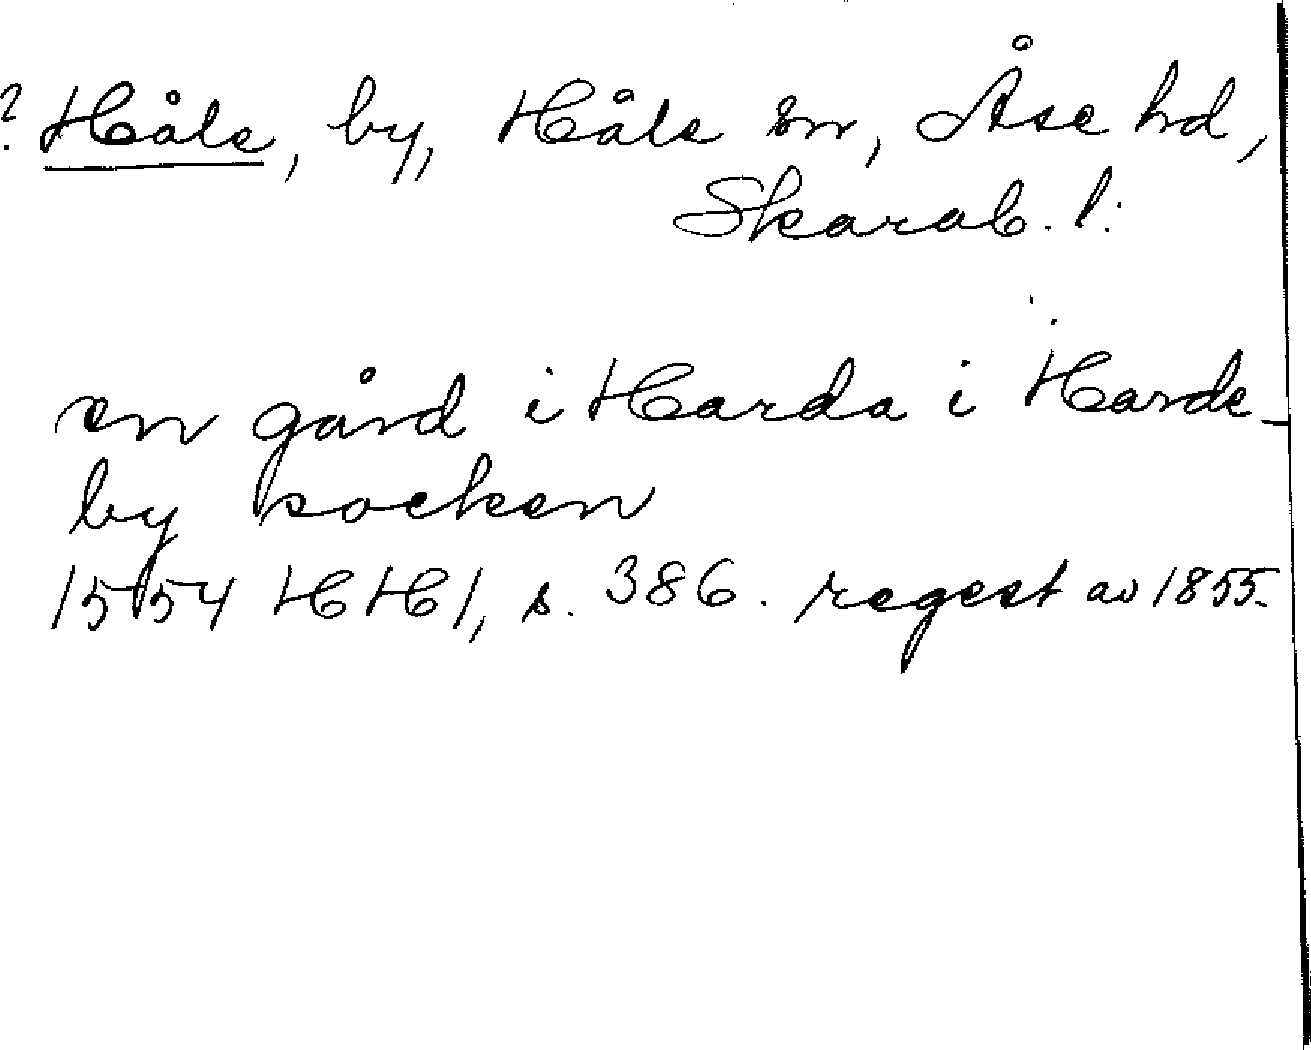 ? Håle, by, Håle sn, Åse hd,
Skarab. l.
en gård i Harda i Harde-
by socken
1554 HH1, s. 386. regest av 1855.